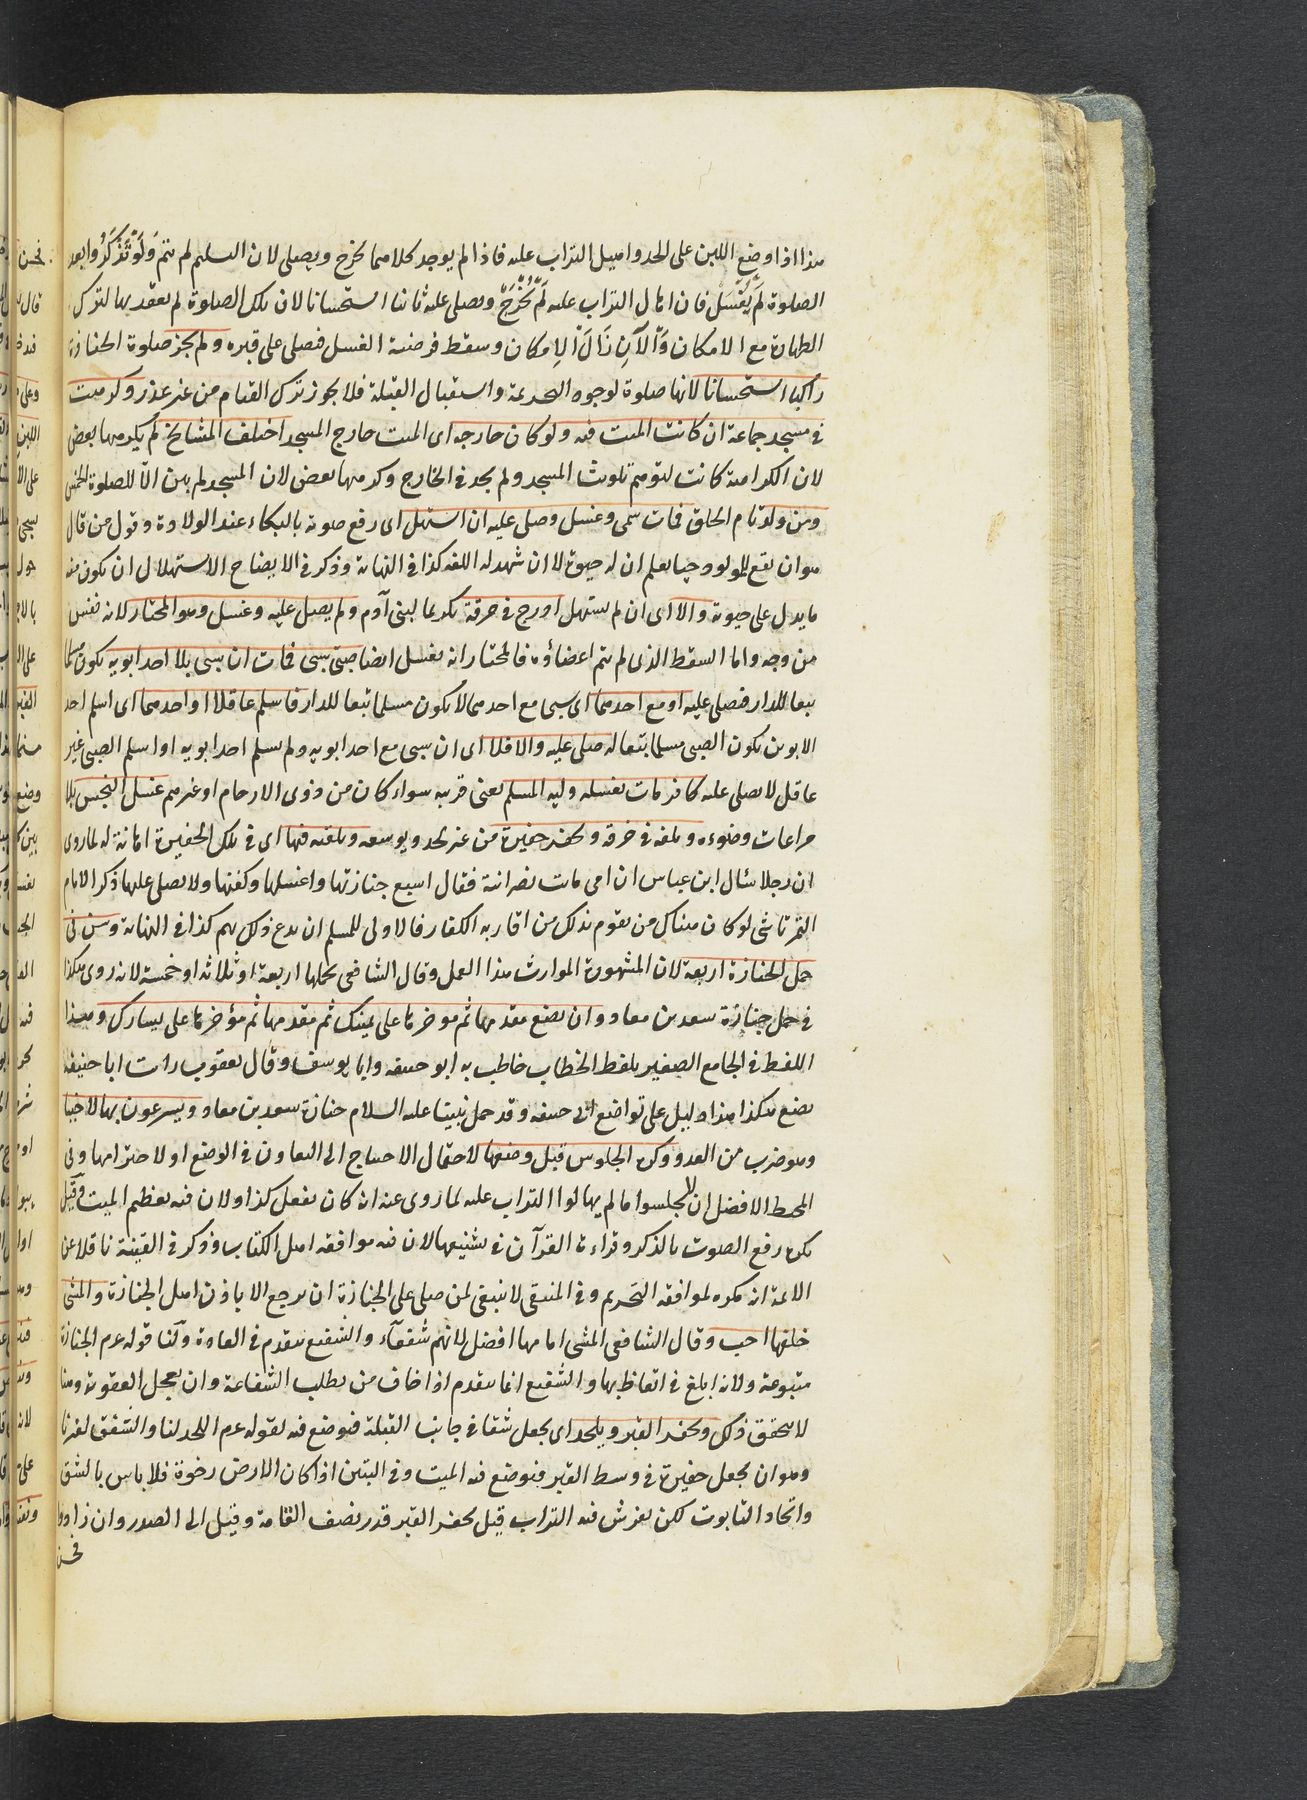 هذا اذا وضع اللبن على اللحد واهيل التراب عليه فاذا لم يوجد كلاهما يخرج ويصلى لان التسليم لم يتم ولو تذكروا بعد
الصلوة لم يغسل فان اهال التراب عليه لم يخرج ويصلى عليه ثانيا استحسانا لان تلك الصلوة لم يعتد بها لترك
الطهارة مع الامكان والآن زال الامكان وسقط فرضية الغسل فيصلى على قبره ولم يجز صلوة الجنازة
راكبا استحسانا لانها صلوة لوجود التحريمة واستقبال القبلة فلا يجوز ترك القيام من غير عذر وكره ميت
في مسجد جماعة ان كانت الميت فيه ولو كان خارجه اى الميت خارج المسجد اختلف المشايخ لم يكرهها بعض
لان الكراهة كانت لتوهم تلويث المسجد ولم يجد في الخارج وكرهها بعض لان المسجد لم يبن الا للصلوة الخمس
ومن ولد تام الخلق فمات سمى وغسل وصلى عليه ان استهل اى رفع صوته بالبكاء عند الولادة وقول من قال
هو ان يقع المولود حيا يعلم ان له حيوة لا ان شهد له اللغة كذا في النهاية وذكر في الايضاح الاستهلال ان يكون منه
ما يدل على حيوته والا اى ان لم يستهل ادرج في خرقة تكريما لبنى آدم ولم يصل عليه وغسل وهو المختار لانه نفس
من وجه واما السقط الذى لم يتم اعضاؤه فالمختار انه يغسل ايضا صبى سبى فمات ان سبى بلا احد ابويه يكون مسلما
تبعا للدار فصلى عليه او مع احدهما اى سبى مع احدهما لا يكون مسلما تبعا للدار فاسلم عاقلا او احدهما اى اسلم احد
الابوين يكون الصبى مسلما تبعا له صلى عليه والا فلا اى ان سبى مع احد ابويه ولم يسلم احد ابويه او اسلم الصبى غير
عاقل لا يصلى عليه كافر مات يغسله وليه المسلم يعنى قريبه سواء كان من ذوى الارحام او غيرهم غسل النجس بلا
مراعات وضوءه ويلفه في خرقة ويحفر حفيرة من غير لحد ويوسعه ويلقيه فيها اى في تلك الحفيرة اهانة له لما روى
ان رجلا سأل ابن عباس ان امى ماتت نصرانية فقال اتبع جنازتها واغسلها وكفنها ولا تصلى عليها ذكر الامام
التمرتاشى لو كان هناك من يقوم بذلك من اقاربه الكفار فالاولى للمسلم ان يدع ذلك بهم كذا في النهاية وسن في
حمل الجنازة اربعة لان المشهورة الموارث هذا العمل وقال الشافعى يحملها اربعة او ثلاثة او خمسة لانه روى هكذا
في حمل جنازة سعد بن معاذ وان يضع مقدمها ثم مؤخرها على يمينك ثم مقدمها ثم مؤخرها على يسارك وهذا
اللفظ في الجامع الصغير بلفظ الخطاب خاطب به ابو حنيفة وابا يوسف وقال يعقوب رأيت ابا حنيفة
يضع هكذا هذا دليل على تواضع ابى حنيفة وقد حمل نبينا عليه السلام جنازة سعد بن معاذ ويسرعون بها لا خببا
وهو ضرب من العدو وكره الجلوس قبل وضعها لاحتمال الاحتياج الى التعاون في الوضع او لاحترامها وفي
المحيط الافضل ان لا يجلسوا ما لم يهالوا التراب عليه لما روى عنه انه كان يفعل كذا ولان فيه تعظيم الميت قيل
يكره رفع الصوت بالذكر وقراءة القرآن في تشييعها لان فيه موافقة اهل الكتاب وذكر في القنية ناقلا عن
الائمة انه مكروه لموافقة التحريم وفي المنتقى لا ينبغى لمن صلى على الجنازة ان يرجع الا باذن اهل الجنازة والمشى
خلفها احب وقال الشافعى المشى امامها افضل لانهم شفعاء والشفيع يتقدم في العادة ولنا قوله عم الجنازة
متبوعة ولانه ابلغ في اتعاظ بها والشفيع انما يتقدم اذا خاف من يطلب الشفاعة وان يعجل العقوبة وهنا
لا يتحقق ذلك ويحفر القبر ويلحد اى يجعل شقا في جانب القبلة فيوضع فيه لقوله عم اللحد لنا والشق لغيرنا
وهو ان يجعل حفيرة في وسط القبر فيوضع فيه الميت وفي التبيين اذا كان الارض رخوة فلا باس بالشق
واتخاذ التابوت لكن يفرش فيه التراب قيل يحفر القبر قدر نصف القامة وقيل الى الصدر وان زادوا
فحسن